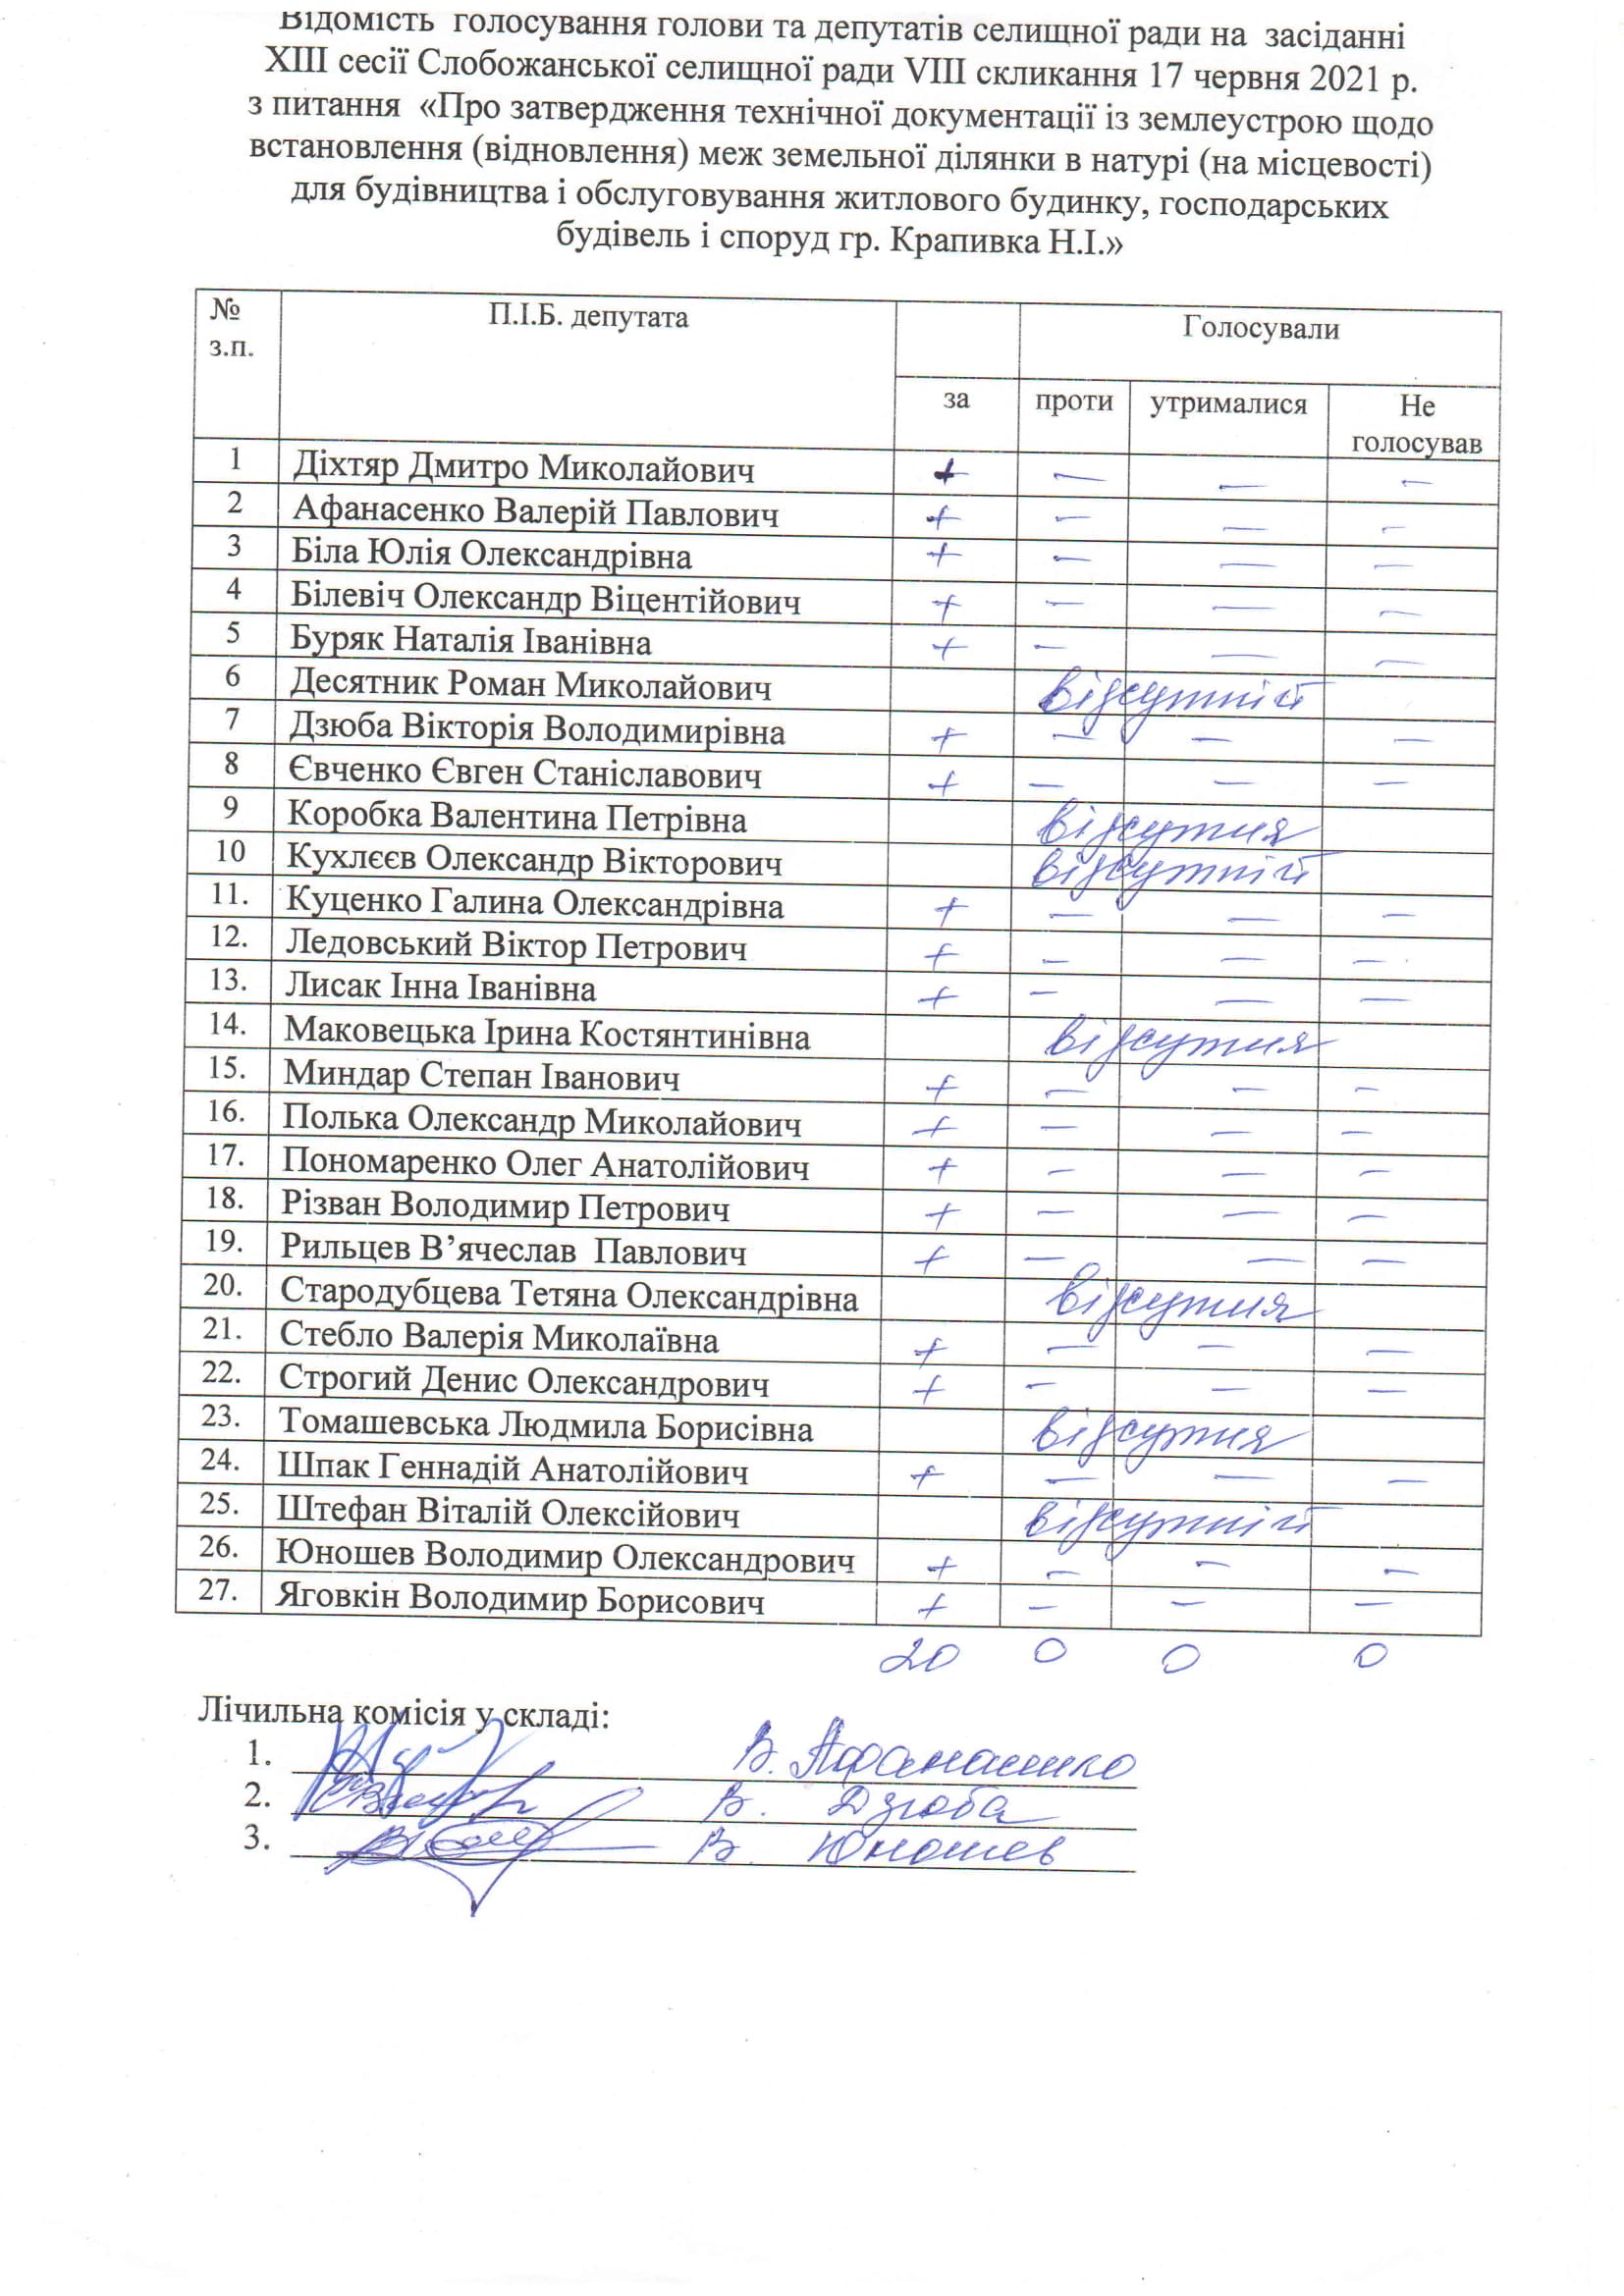 Відомість голосування голови та депутатів селищної ради на засіданні
XIII сесії Слобожанської селищної ради VIII скликання 17 червня 2021 р.
з питання «Про затвердження технічної документації із землеустрою щодо
встановлення (відновлення) меж земельної ділянки в натурі (на місцевості)
для будівництва і обслуговування житлового будинку, господарських
будівель і споруд гр. Крапивка Н.І.»
№ з.п. П.І.Б. депутата Голосували
за проти утрималися Не голосував
1 Діхтяр Дмитро Миколайович + — — —
2 Афанасенко Валерій Павлович + — — —
3 Біла Юлія Олександрівна + — — —
4 Білевіч Олександр Віцентійович + — — —
5 Буряк Наталія Іванівна + — — —
6 Десятник Роман Миколайович відсутній
7 Дзюба Вікторія Володимирівна + — — —
8 Євченко Євген Станіславович + — — —
9 Коробка Валентина Петрівна відсутня
10 Кухлєєв Олександр Вікторович відсутній
11. Куценко Галина Олександрівна + — — —
12. Ледовський Віктор Петрович + — — —
13. Лисак Інна Іванівна + — — —
14. Маковецька Ірина Костянтинівна відсутня
15. Миндар Степан Іванович + — — —
16. Полька Олександр Миколайович + — — —
17. Пономаренко Олег Анатолійович + — — —
18. Різван Володимир Петрович + — — —
19. Рильцев В’ячеслав Павлович + — — —
20. Стародубцева Тетяна Олександрівна відсутня
21. Стебло Валерія Миколаївна + — — —
22. Строгий Денис Олександрович + — — —
23. Томашевська Людмила Борисівна відсутня
24. Шпак Геннадій Анатолійович + — — —
25. Штефан Віталій Олексійович відсутній
26. Юношев Володимир Олександрович + — — —
27. Яговкін Володимир Борисович + — — —
20 0 0 0
Лічильна комісія у складі:
1. В. Афанасенко
2. В. Дзюба
3. В. Юношев